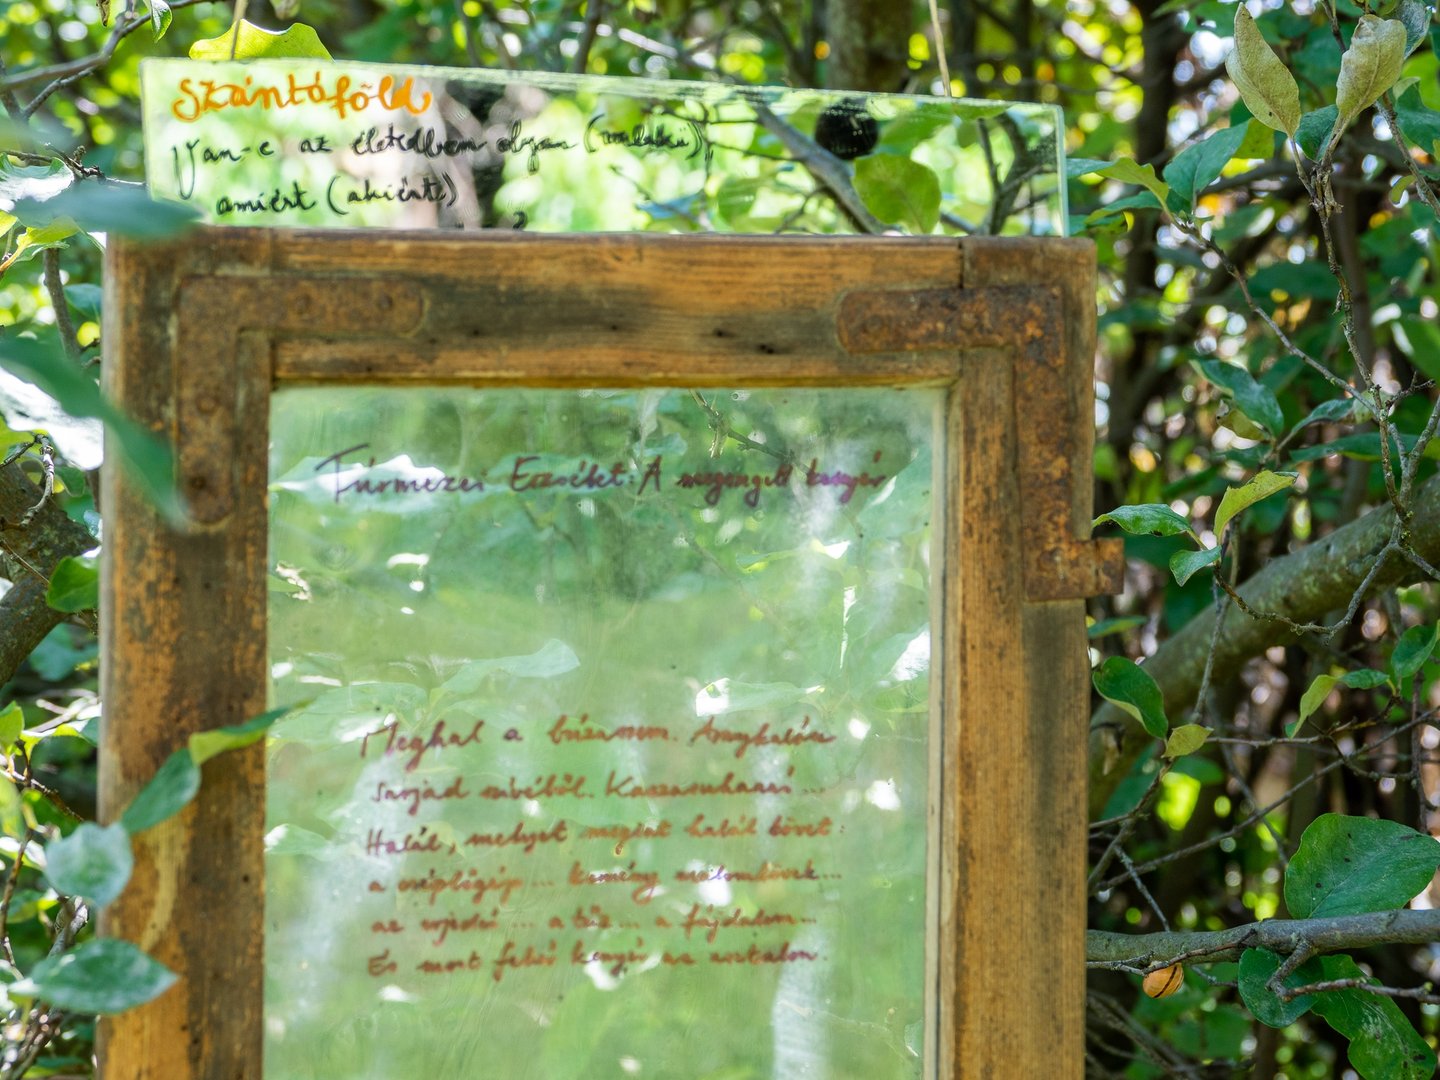 Szántóföld
Van-e az életedben olyan (valaki),
amiért (akiért)
?
Túrmezei Erzsébet: A megengelt kenyér
Meghal a búzaszem. Aranykalász
sarjad sírból. Kaszasuhanás...
Halál, melyet megint halál követ:
a cséplőgép... kemény malomkövek...
az ... a tűz... a fájdalom...
És most fehér kenyér az asztalon.